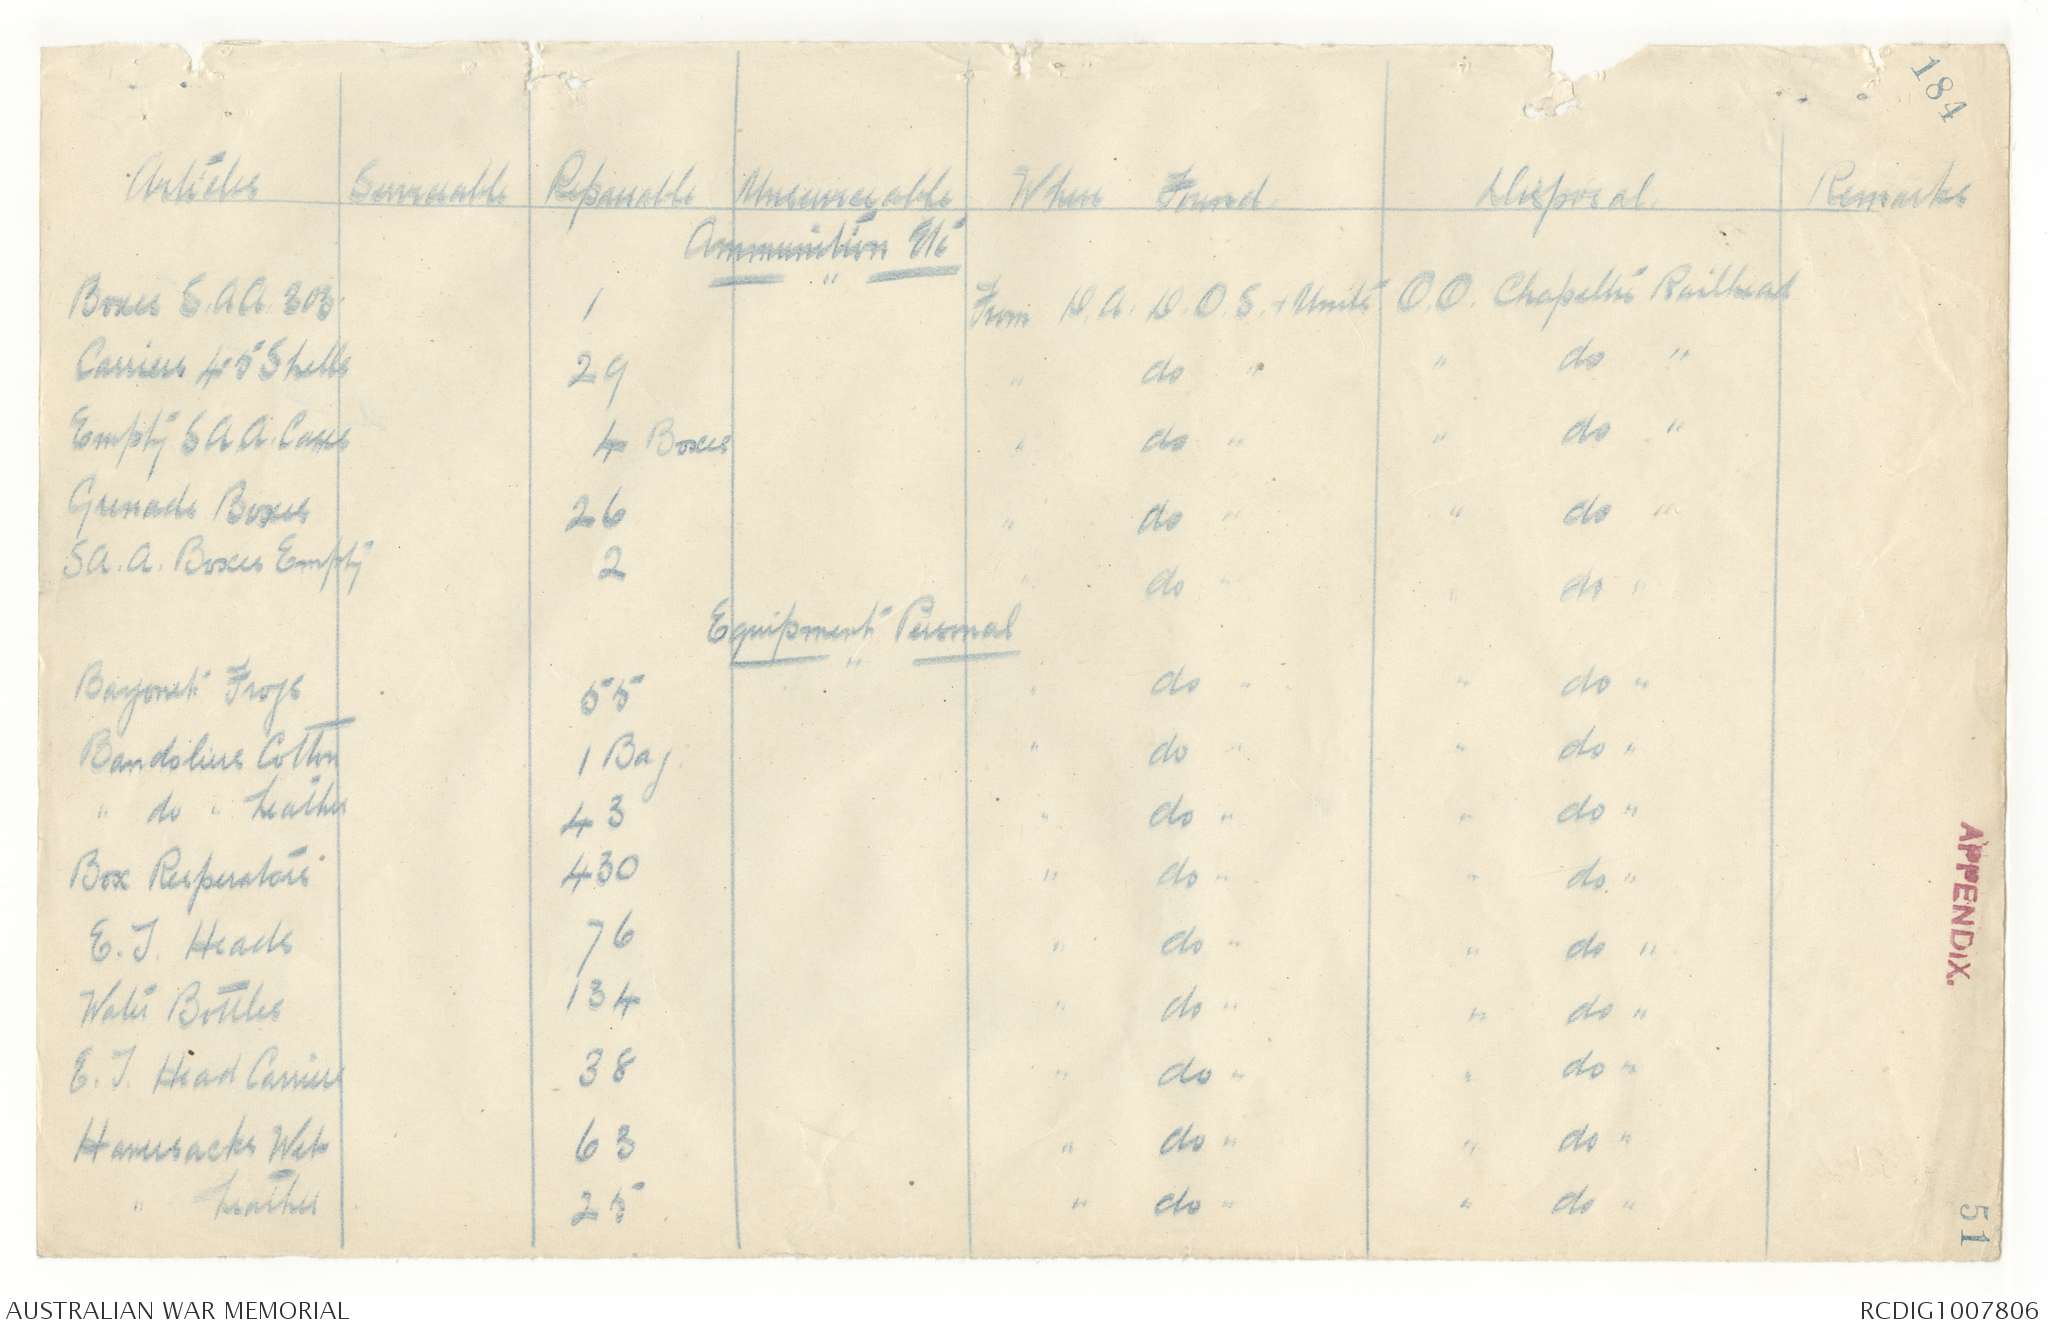 184
Articles Serviceable Repairable Unserviceable When Found Disposal Remarks
Ammunition Etc
"
Boxes S.A.A. 303 1 From D.A.D.O.S. + Units O.O. Chapelle Railhead
Carriers 4.5 Shells 29 " do " " do "
Empty S.A.A. Cases 4 Boxes " do " " do "
Grenade Boxes 26 " do " " do "
S.A.A. Boxes Empty 2 " do " " do "
Equipment Personal
"
Bayonet Frogs 55 " do " " do "
Bandoliers Cotton 1 Bag " do " " do "
" do " Leather 43 " do " " do "
Box Resperators 430 " do " " do "
E.T. Heads 76 " do " " do "
Water Bottles 134 " do " " do "
E.T. Head Carriers 38 " do " " do "
Haversacks Web 63 " do " " do "
" Leather 25 " do " " do "
APPENDIX.
51
AUSTRALIAN WAR MEMORIAL RCDIG1007806